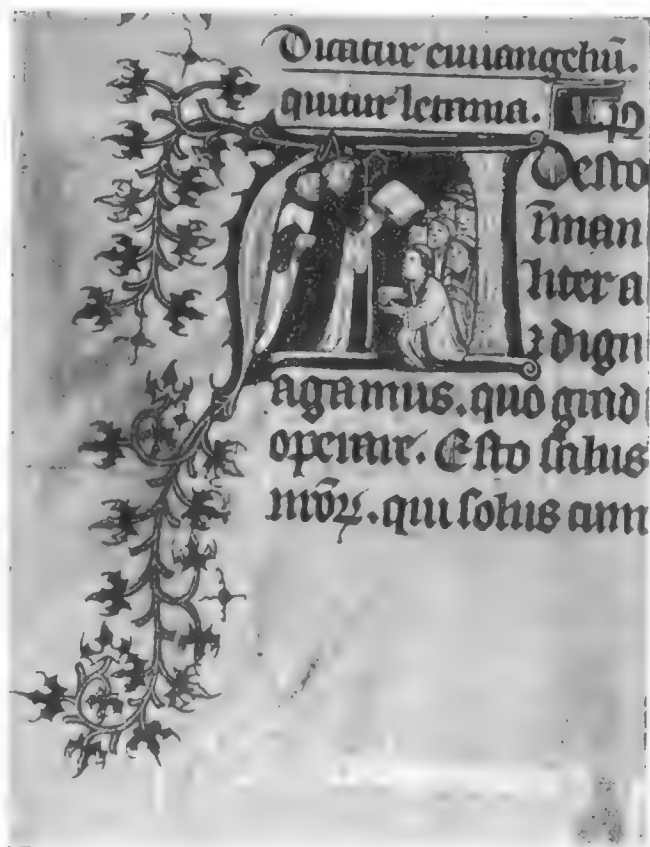 Dicatur euuangeliū.
quitur letania.
desto
ıman
liter a
⁊ dign
agamus. quo gradi
operitur. Esto salus
qui solus cum